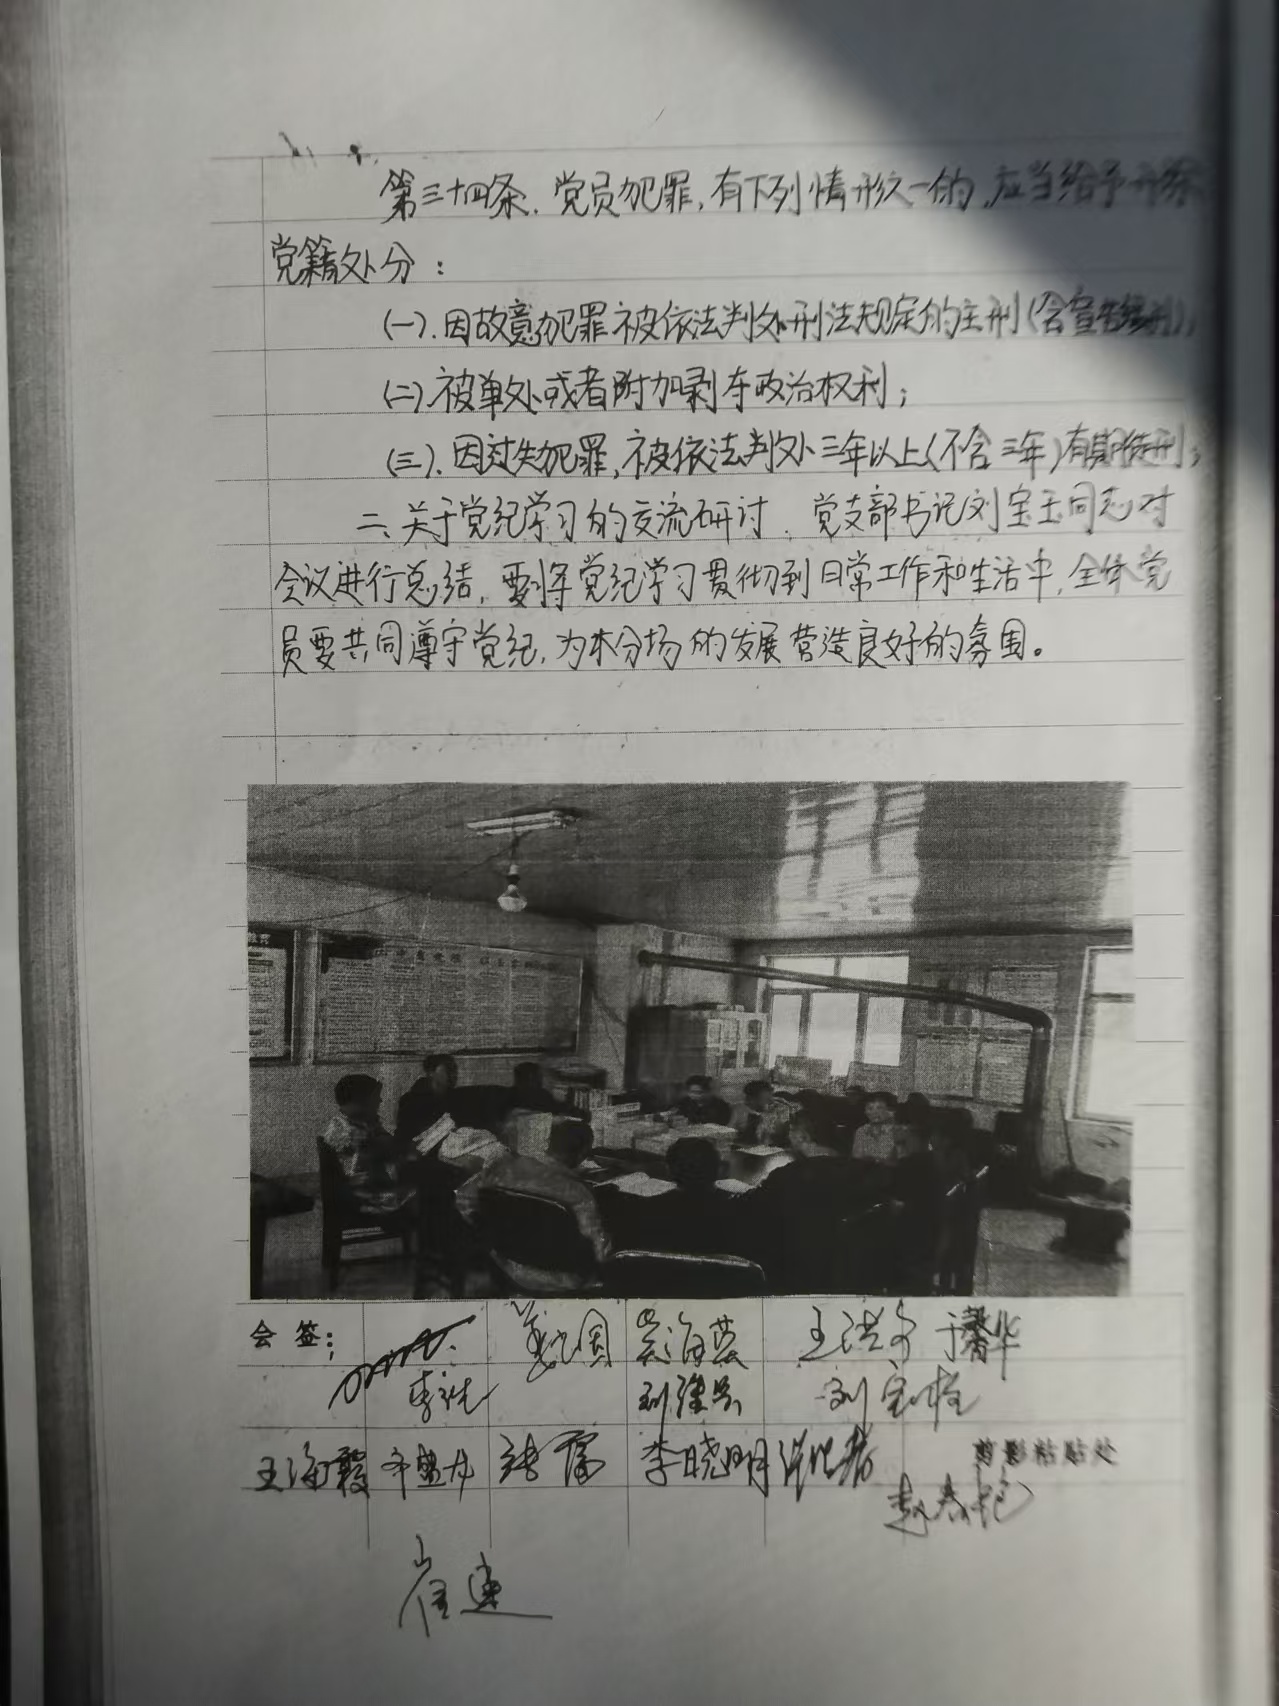 第三十四条.党员犯罪,有下列情形之一的,应当给予开除
党籍处分:
(一).因故意犯罪被依法判处刑法规定的主刑(含宣告缓刑);
(二).被单处或者附加剥夺政治权利;
(三).因过失犯罪,被依法判处三年以上(不含三年)有期徒刑;
二、关于党纪学习的交流研讨.党支部书记刘宝玉同志对
会议进行总结,要将党纪学习贯彻到日常工作和生活中,全体党
员要共同遵守党纪,为本分场的发展营造良好的氛围。
会签:
于馨华
王海霞 李晓明
剪影粘贴处
崔连